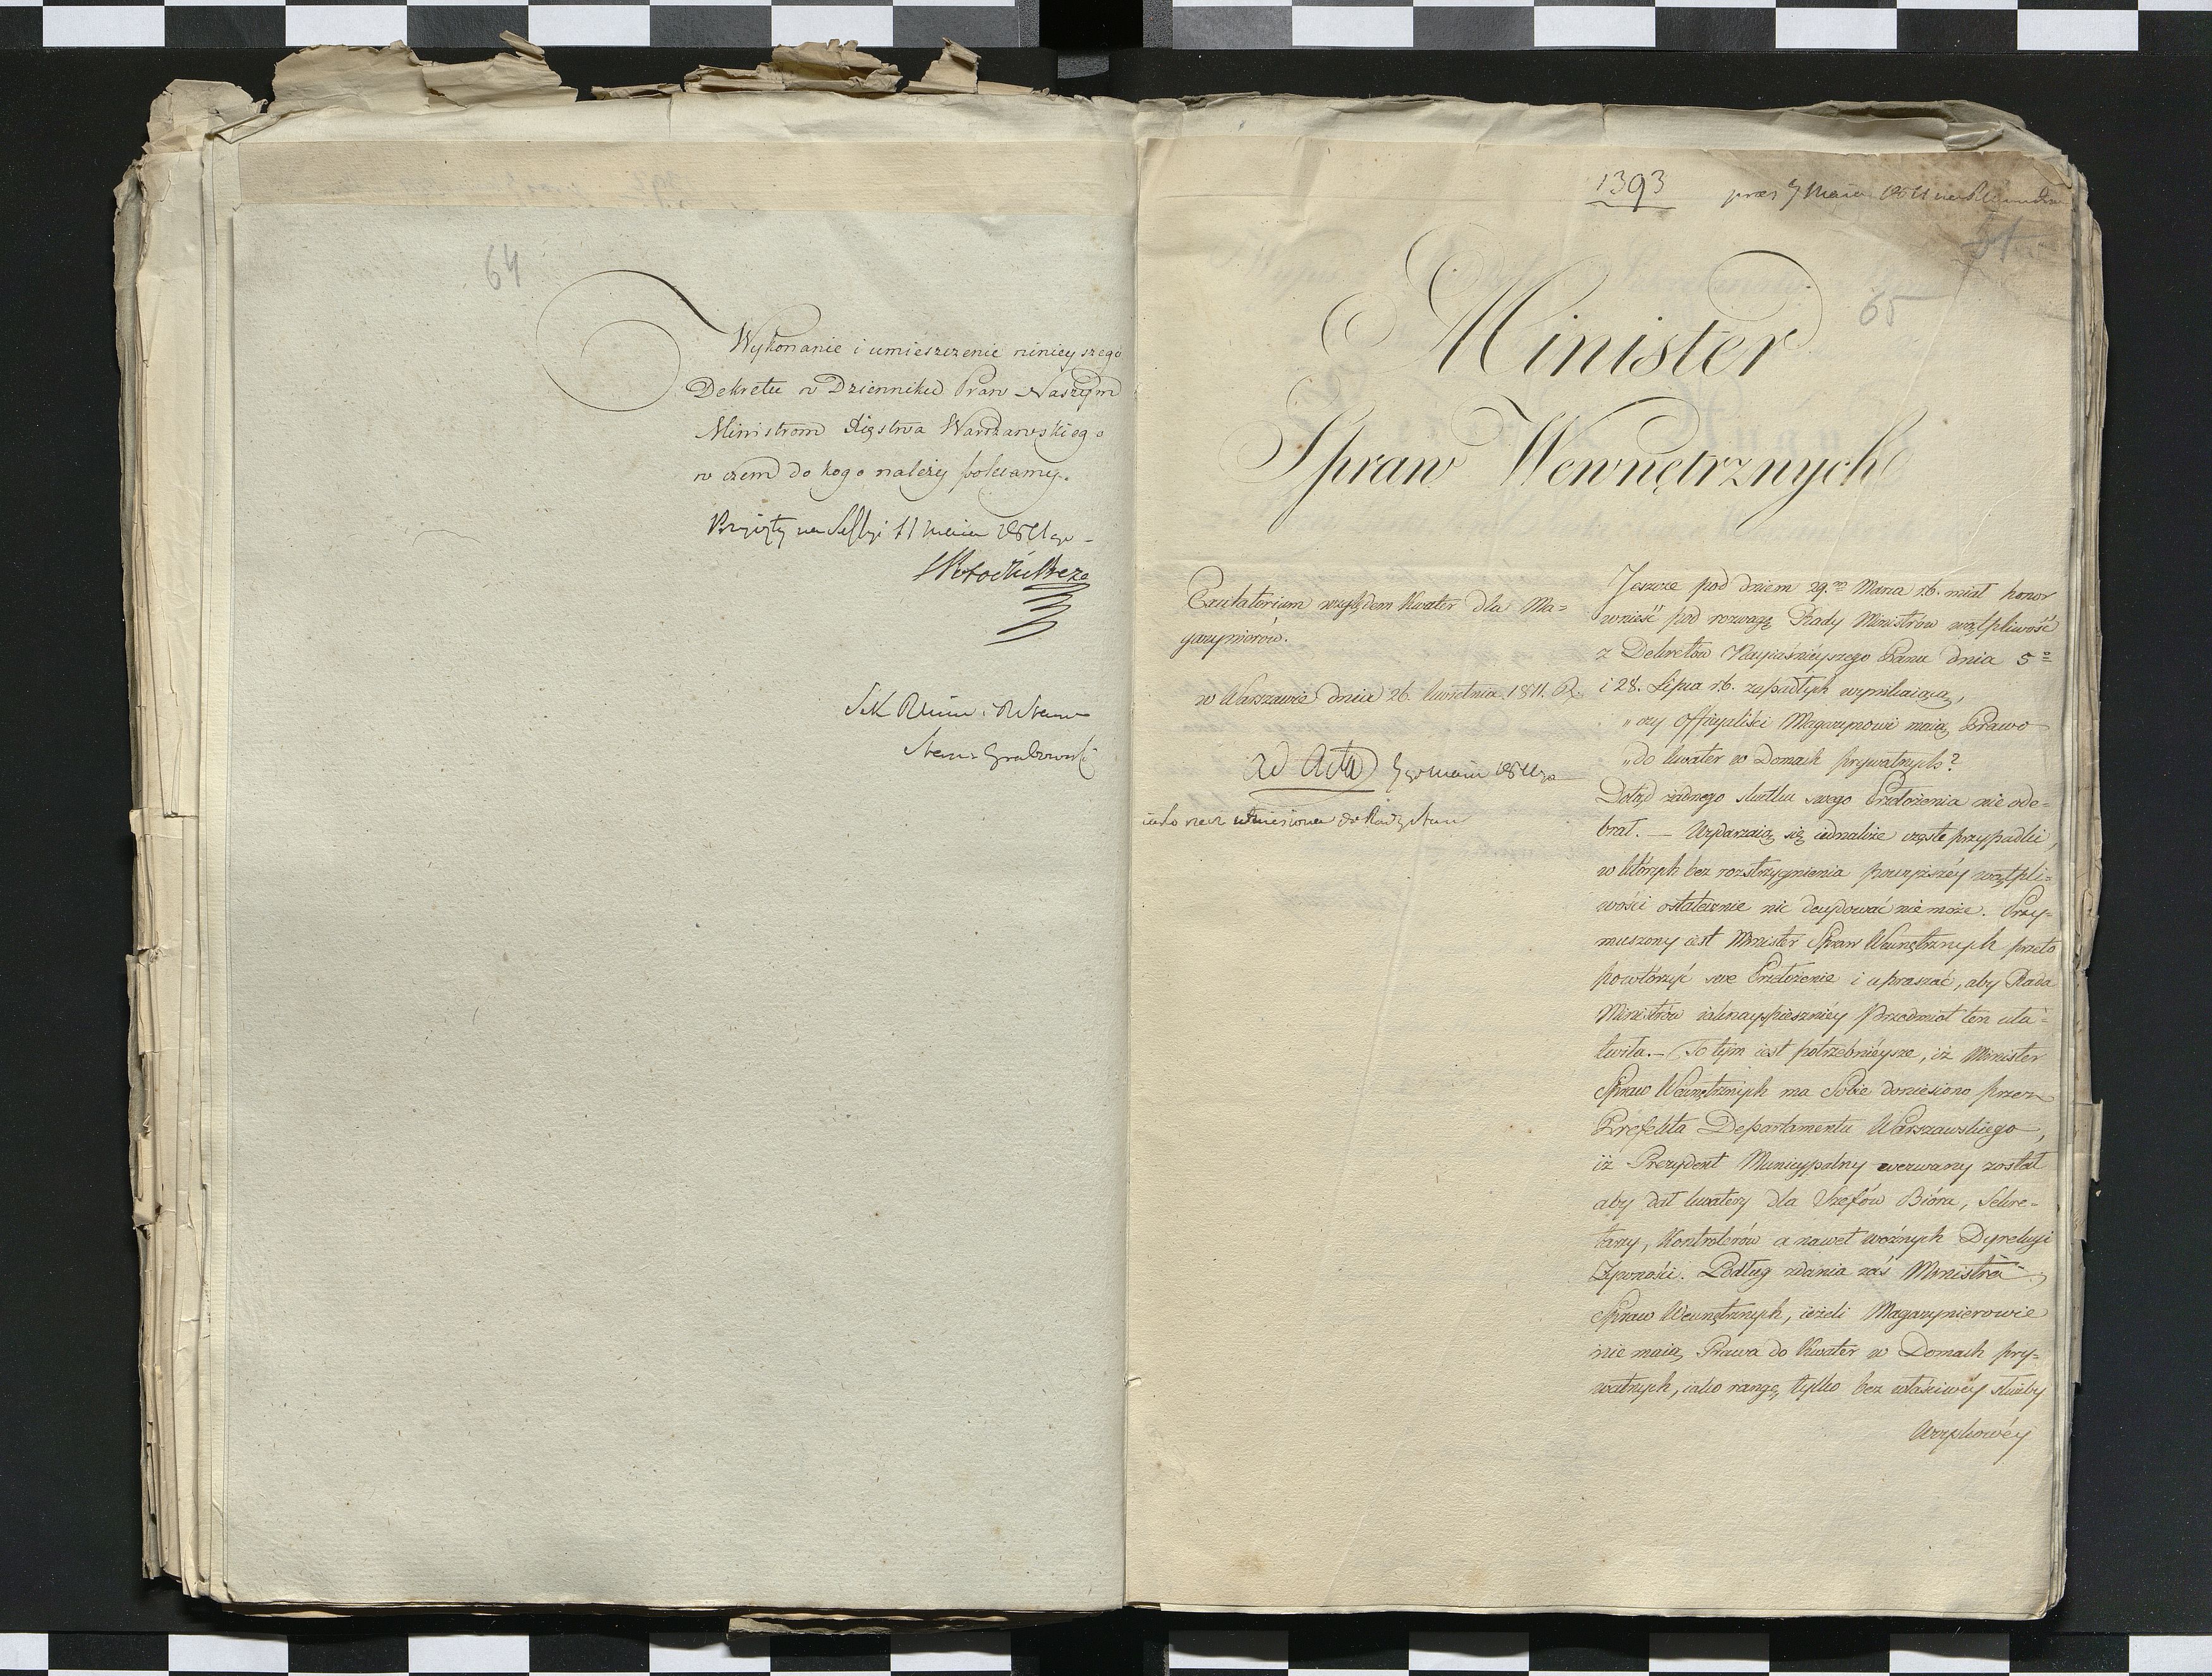 64
Wykonanie i umieszczenie ninieyszego
Dekretu w Dzienniku Praw Naszym
Ministrom Xięstwa Warszawskiego
w czem do kogo należy polecamy.
Przyięty na Sessyi 11 Maia 1811 go
Sek
Stan. Grabowski
1393
prez 7 Maia 1811
51
65
Minister
Spraw Wewnętrznych
Excitatorium względem kwater dla Ma=
gazynierów.
w Warszawie dnia 26. kwietnia 1811. R.
ad Acta 7 go Maia 1811 go
iako rzecz wniesiona do Rady Stanu
Jeszcze pod dniem 29. Marca r.b. miał honor
wnieść pod rozwagę Rady Ministrów wątpliwość
z Dekretów Nayiaśnieyszego Pana dnia 5
i 28. Lipca r.b. zapadłych wynikaiącą,
"czy Officyaliści Magazynowi maią Prawo
"do kwater w Domach prywatnych?
Dotąd żadnego skutku swego Przełożenia nie ode=
brał. — Wydarzaią się iednakże częste przypadki,
w których bez rozstrzygnienia powyższéy wątpli=
wości ostatecznie nic decydować nie może. Przy=
muszony iest Minister Spraw Wewnętrznych przeto
powtórzyć swe Przełożenie i upraszać, aby Rada
Ministrów iaknayspieszniéy Przedmiot ten uła=
twiła. — To tym iest potrzebnieysze, iż Minister
Spraw Wewnętrznych ma Sobie doniesiono przez
Prefekta Departamentu Warszawskiego,
iż Prezydent Municypalny wezwany został
aby dał kwatery dla Szefów Bióra, Sekre=
tarzy, Kontrolerów a nawet woźnych Dyrekcyi
Żywności. Podług zdania zaś Ministra
Spraw Wewnętrznych, ieżeli Magazynierowie
nie maią Prawa do Kwater w Domach pry=
watnych, iako rangę tylko bez właściwéy służby
Woyskowéy